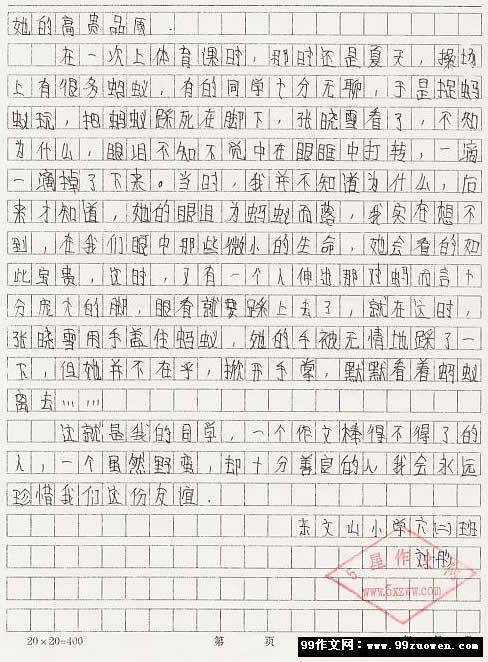 她的高贵品质.
在一次上体育课时，那时还是夏天，操场
上有很多蚂蚁，有的同学十分无聊，于是捉蚂
蚁玩，把蚂蚁踩死在脚下，张晓雪看了，不知
为什么，眼泪不知不觉中在眼眶中打转，一滴
一滴掉了下来。当时，我并不知道为什么，后
来才知道，她的眼泪为蚂蚁而落，我实在想不
到，在我们眼中那些微小的生命，她会看的如
此宝贵，这时，又有一个人伸出那对蚂而言十
分庞大的脚，眼看就要踩上去了，就在这时，
张晓雪用手盖住蚂蚁，她的手被无情地踩了一
下，但她并不在乎，掀开手掌，默默看着蚂蚁
离去……
这就是我的同学，一个作文棒得不得了的
人，一个虽然野蛮，却十分善良的人我会永远
珍惜我们这份友谊.
东文山小学六(二)班
5星作
www.5xzww.com
20×20=400 第 页
99作文网：www.99zuowen.com